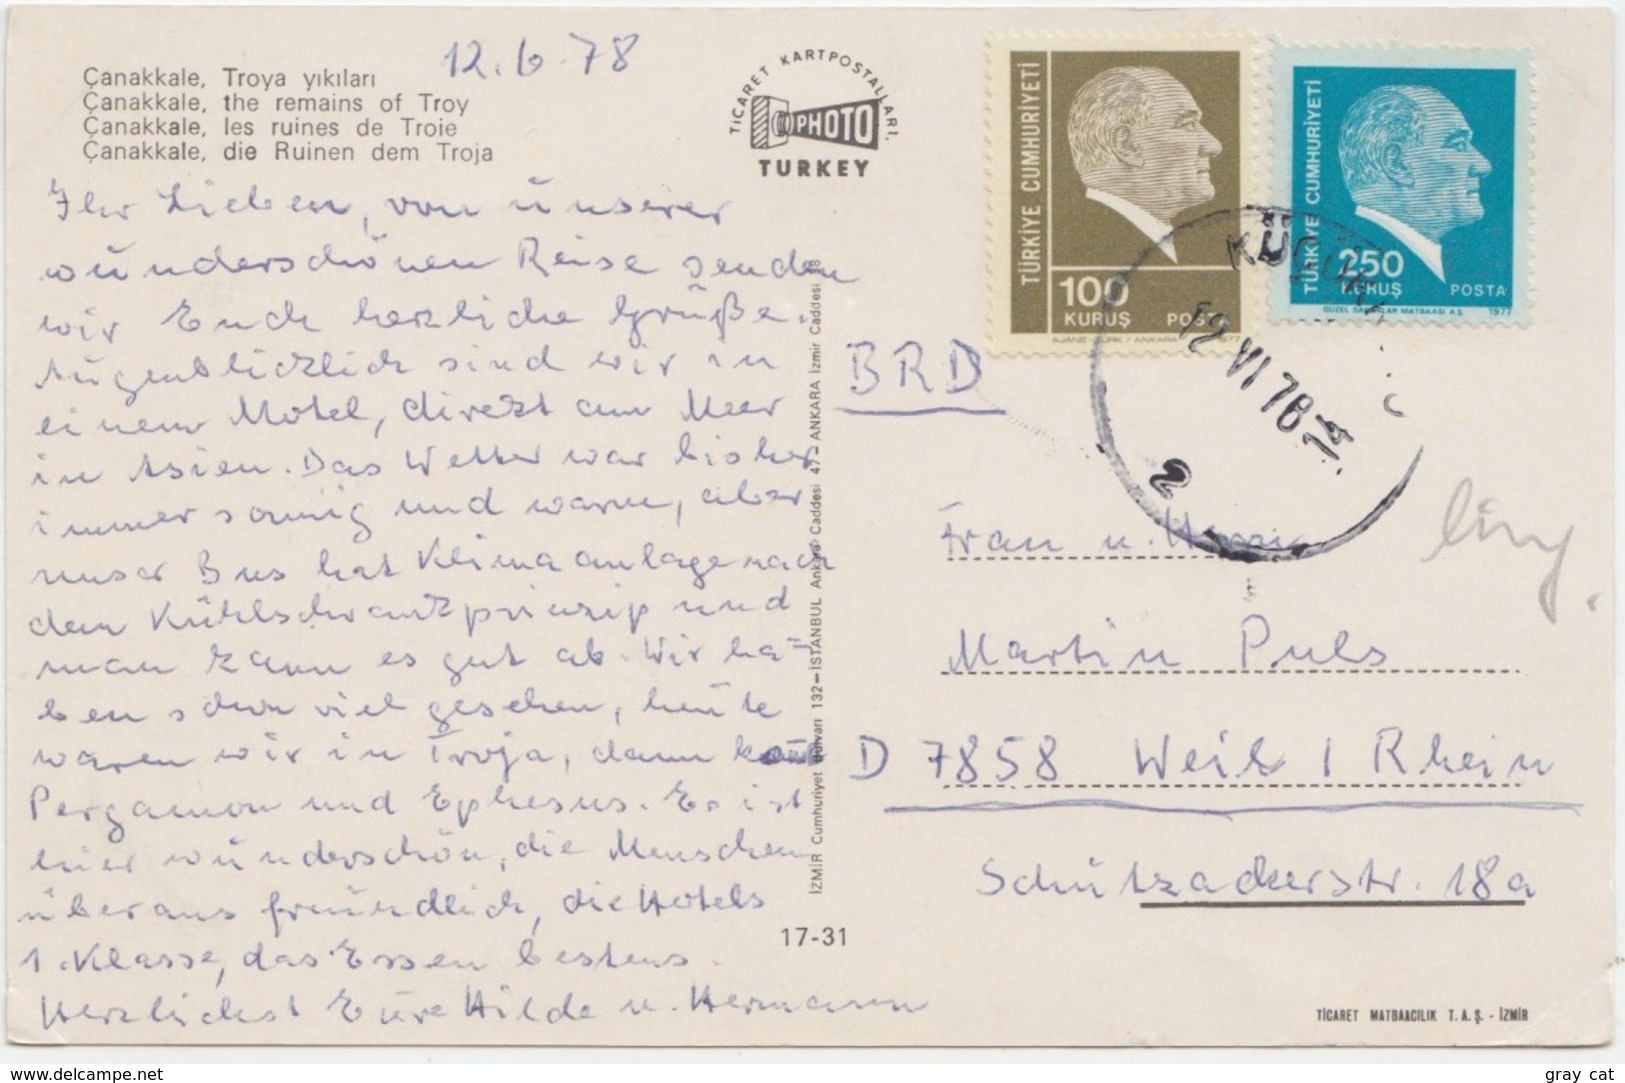 12.6.78
Çanakkale, Troya yıkıları
Çanakkale, the remains of Troy
Çanakkale, les ruines de Troie
Çanakkale, die Ruinen dem Troja
TİCARET KARTPOSTALLARI.
PHOTO
TURKEY
TÜRKİYE CUMHURİYETİ
100
KURUŞ POSTA
AJANS-TÜRK / ANKARA 1977
TÜRKİYE CUMHURİYETİ
250
KURUŞ POSTA
GÜZEL SANATLAR MATBAASI A.Ş. 1977
12 VI 78 14
2
Ihr Lieben, von unserer
wunderschönen Reise senden
wir Euch herzliche Grüße.
Augenblicklich sind wir in
einem Motel, direkt am Meer
in Asien. Das Wetter war bisher
immer sonnig und warm, aber
unser Bus hat Klimaanlage nach
dem Kühlschrankprinzip und
man kann es gut ab. Wir ha=
ben schon viel gesehen, heute
waren wir in Troja, dann
Pergamon und Ephesus. Es ist
hier wunderschön, die Menschen
überaus freundlich, die Hotels
1. Klasse, das Essen bestens.
Herzlichst Eure Hilde u. Hermann
İZMİR Cumhuriyet Bulvarı 132-İSTANBUL Ankara Caddesi 47-ANKARA İzmir Caddesi 38
17-31
BRD
Frau u. Herrn
Martin Puls
D 7858 Weil / Rhein
Schützackerstr. 18a
TİCARET MATBAACILIK T.A.Ş. - İZMİR
www.delcampe.net
gray cat